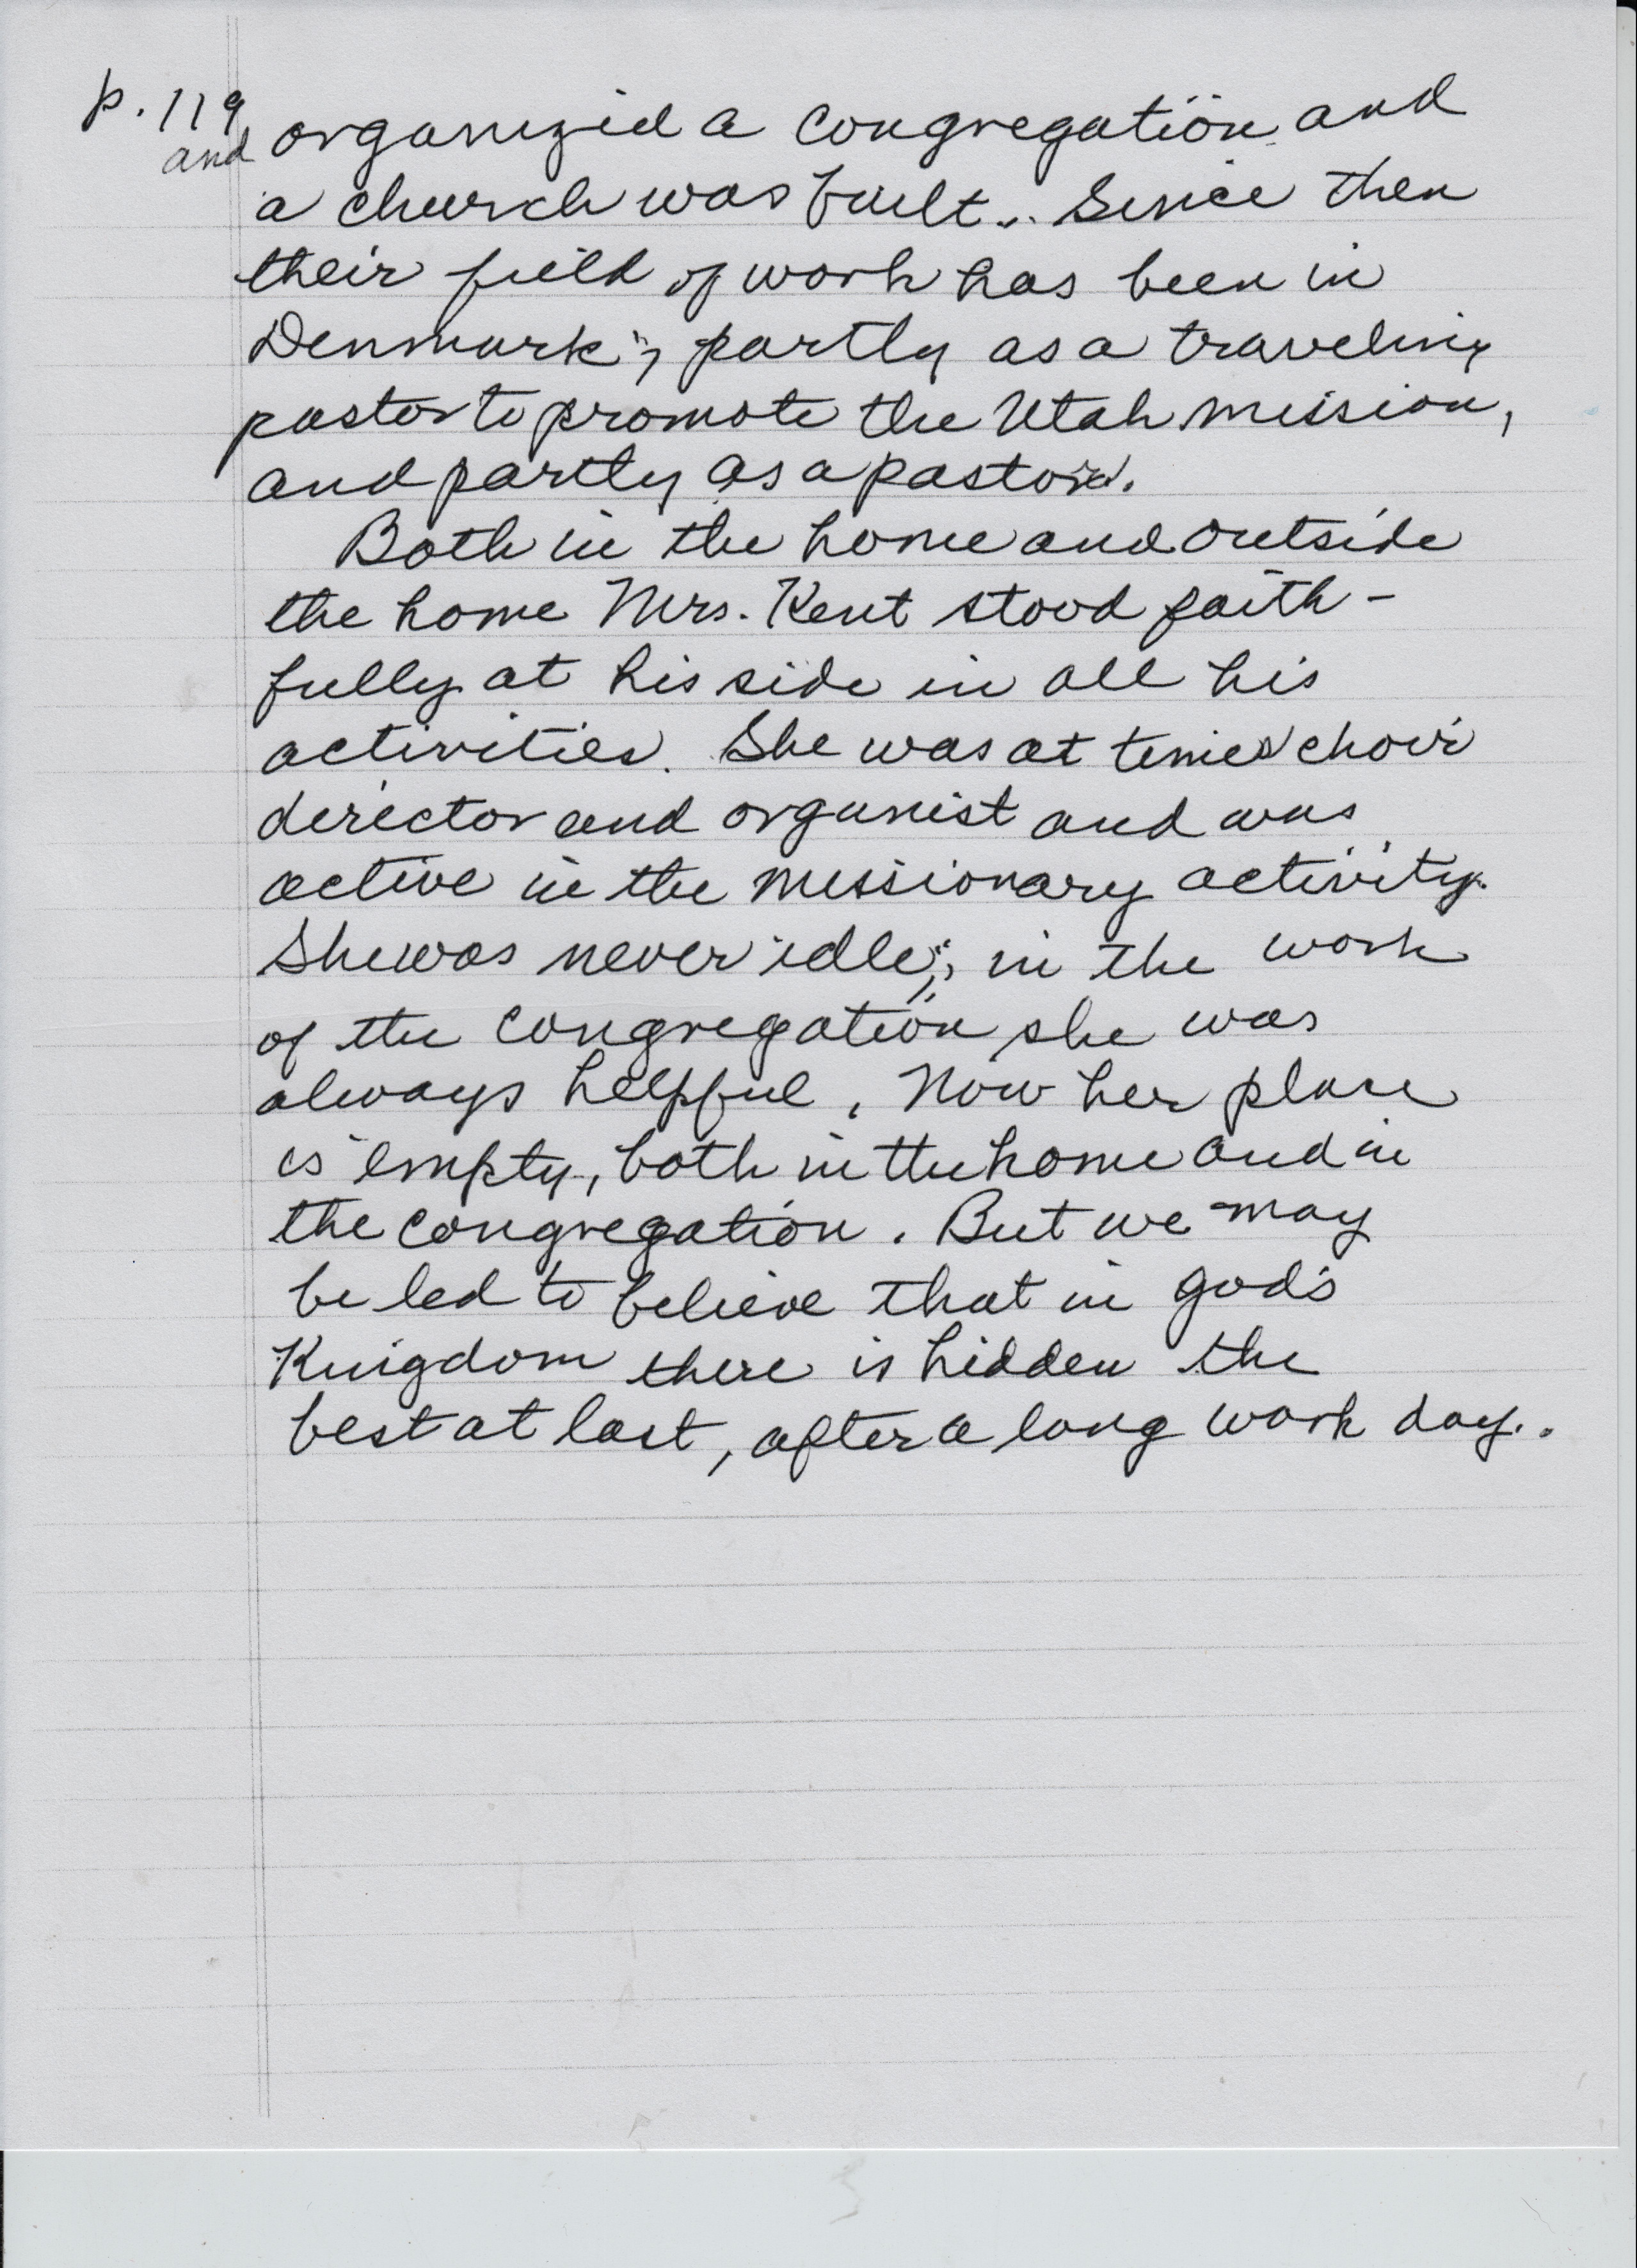 p. 119
and organized a congregation and
a church was built. Since then
their field of work has been in
Denmark; partly as a traveling
pastor to promote the Utah mission,
and partly as a pastor.
Both in the home and outside
the home Mrs. Kent stood faith-
fully at his side in all his
activities. She was at times choir
director and organist and was
active in the missionary activity.
She was never idle; in the work
of the congregation she was
always helpful. Now her place
is empty, both in the home and in
the congregation. But we may
be led to believe that in God's
Kingdom there is hidden the
best at last, after a long work day.